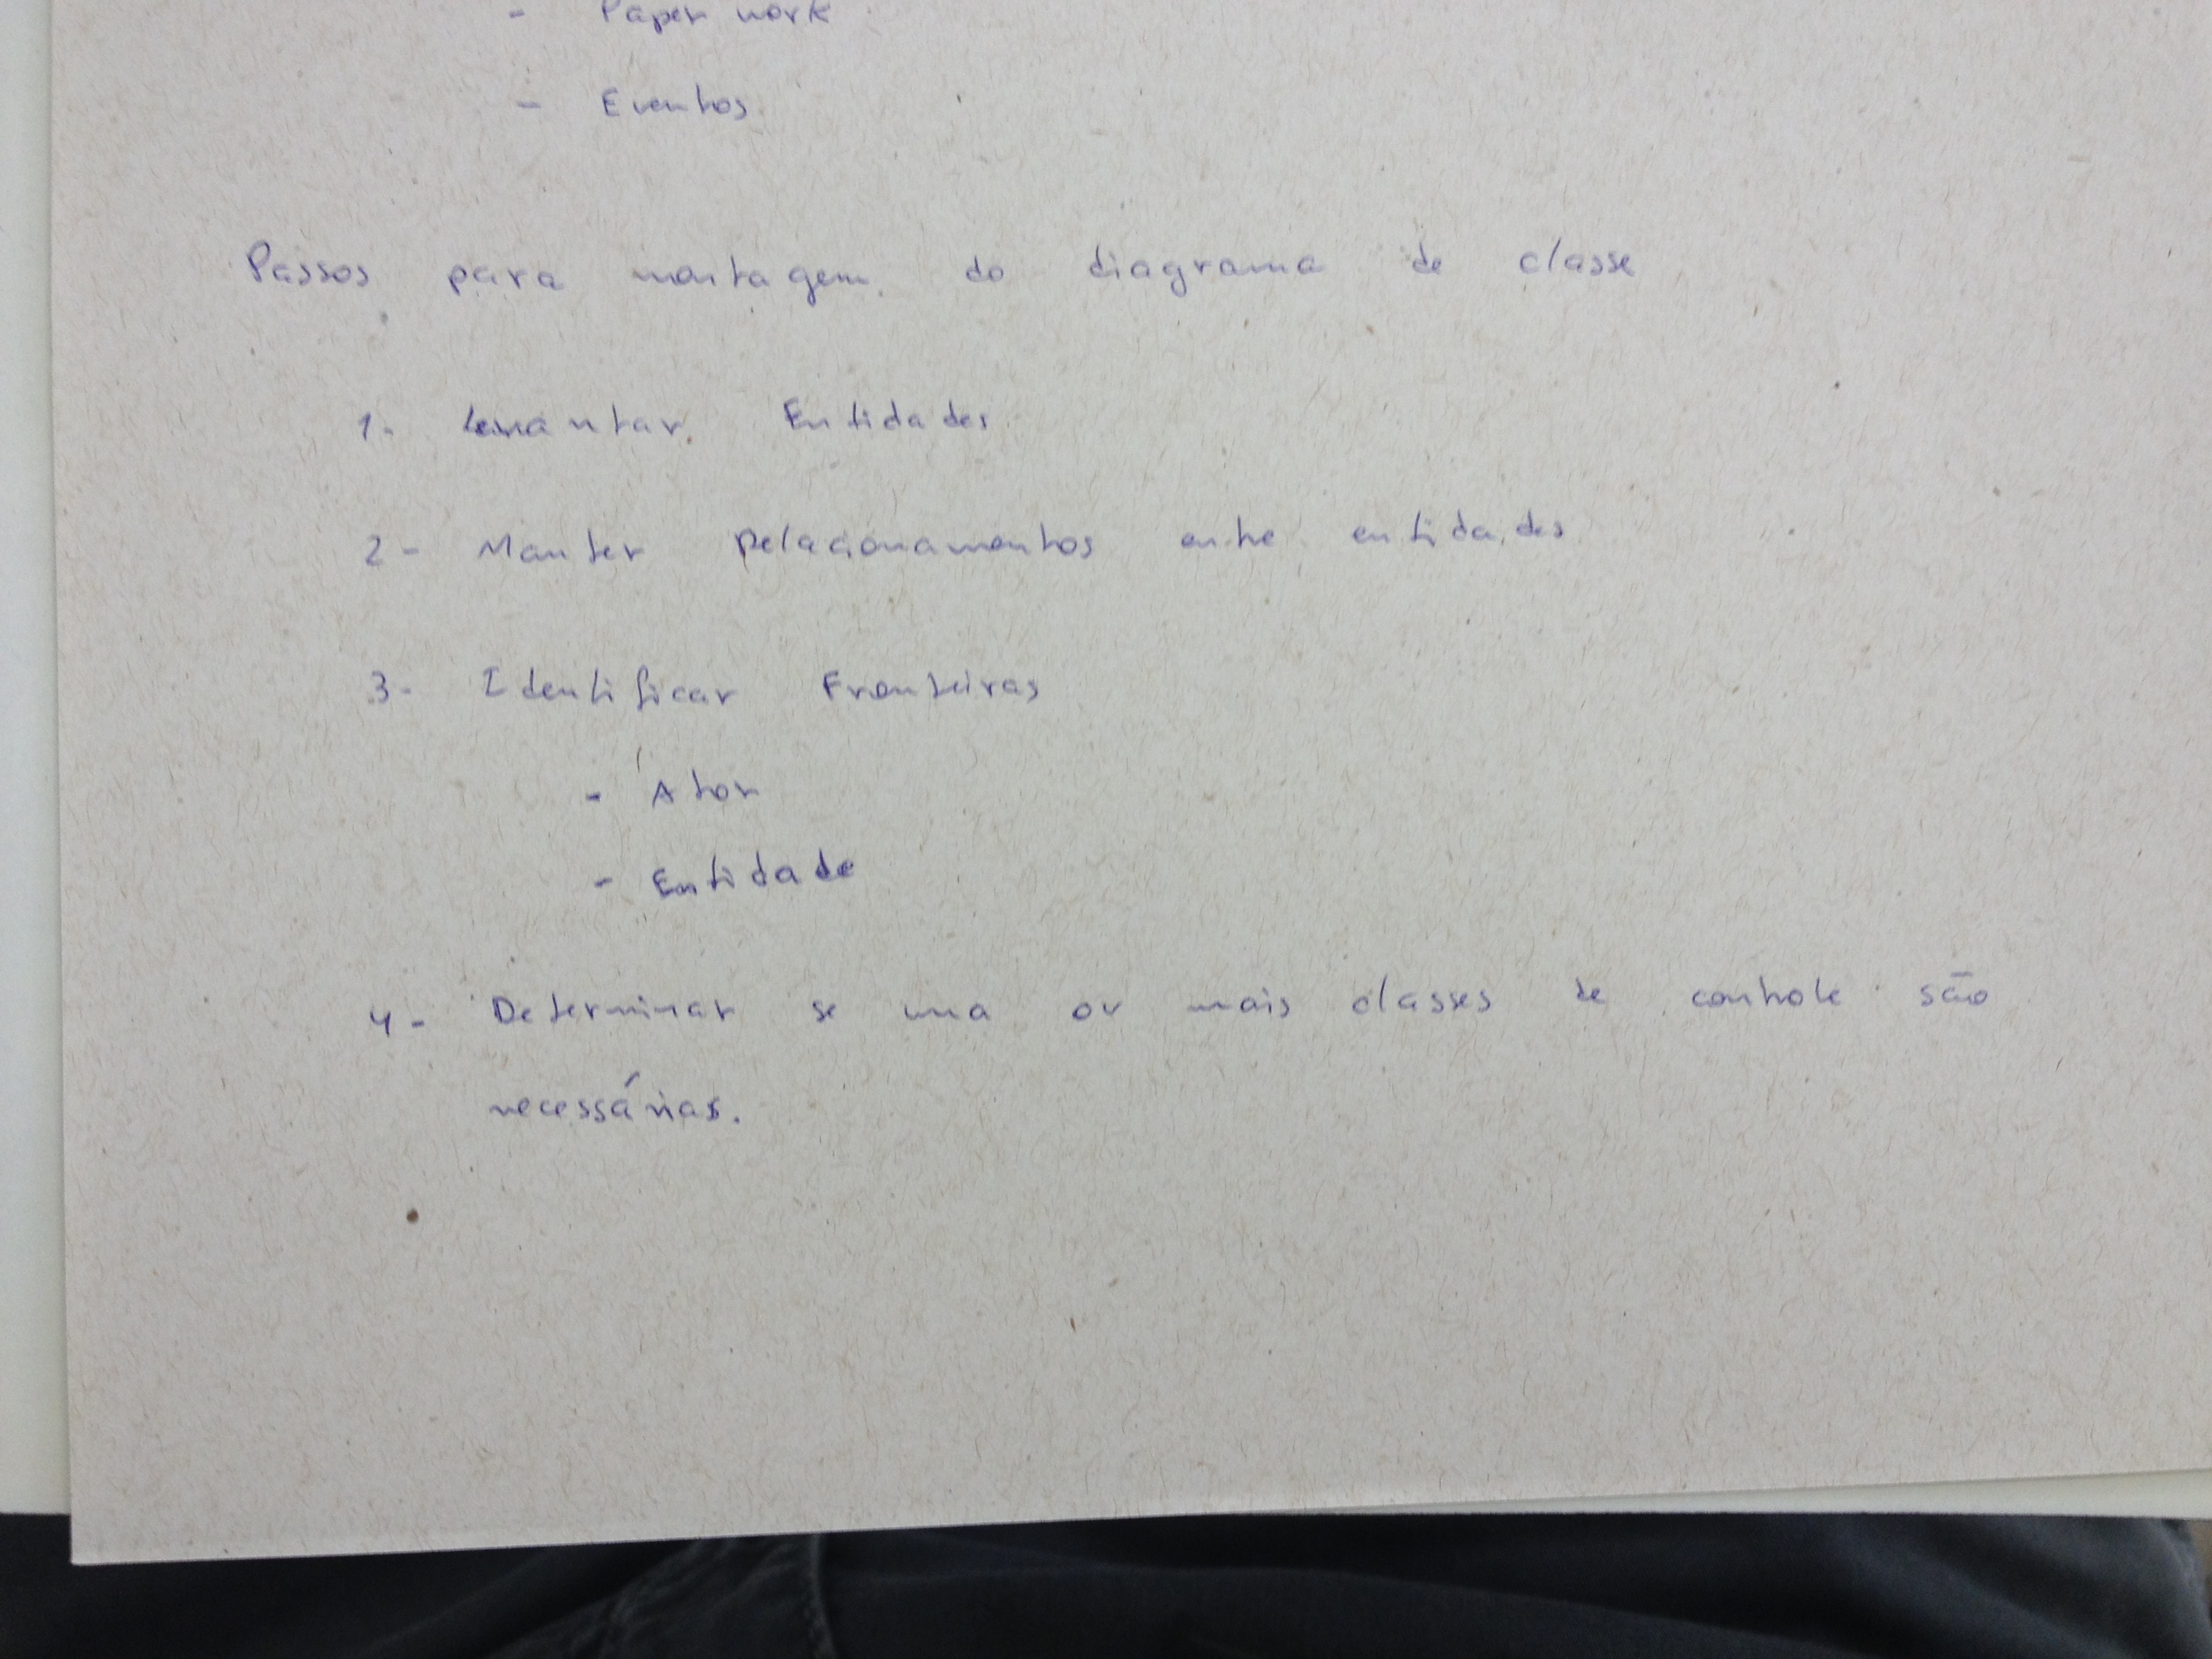 - Paper work
- Eventos
Passos para montagem do diagrama de classe
1- Levantar Entidades
2- Manter Relacionamentos entre entidades
3- Identificar Fronteiras
- Ator
- Entidade
4- Determinar se uma ou mais classes de controle são
necessárias.